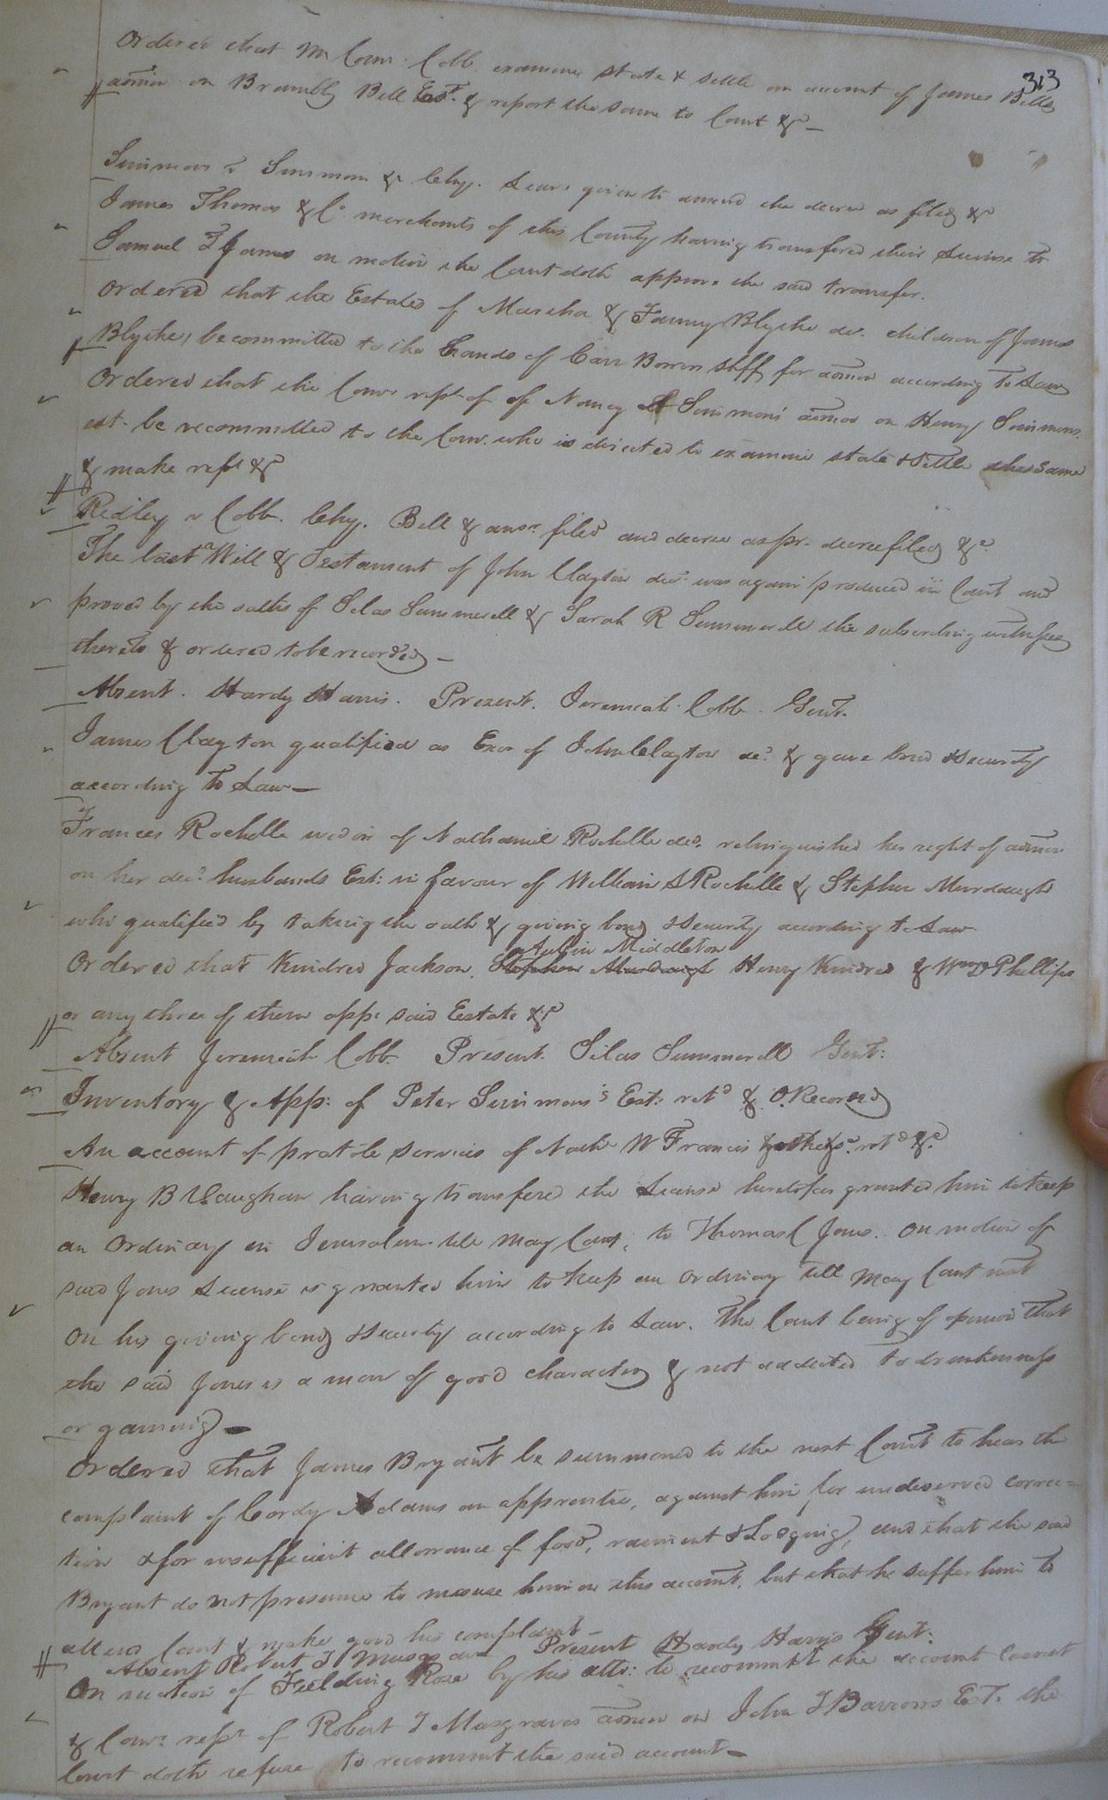 313
Ordered that Mr Com. Cobb examine state & settle an account of James Bells
admor on Brambly Bell Est. & report the same to Court &c—
Simmons v Simmons &c Chy. Leave given to amend the decree as filed &c
James Thomas & Co merchants of this County having transfered their License to
Samuel T James on motion the Court doth approve the said transfer.
Ordered that the Estates of Marsha & Fanny Blythe dec. children of James
Blythe, be committed to the hands of Carr Bowers Shff for admon according to Law
Ordered that the Comr rept of of Nancy Simmons admor on Henry Simmons
est. be recommitted to the Com. who is directed to examine state & settle the same
& make rept &c
Ridley v Cobb. Chy. Bill & ansr filed and decree as pr. decree filed &c
The last Will & Testament of John Clayton decd was again produced in Court and
proved by the oaths of Silas Summerell & Sarah R Summerell the subscribing witnesses
thereto & ordered to be recorded—
Absent. Hardy Harris. Present. Jeremiah Cobb. Gent.
James Clayton qualified as Exor of John Clayton decd & gave bond & security
according to Law—
Frances Rochelle widow of Nathaniel Rochelle decd. relinquished her right of admon
on her decd husbands Est: in favour of William S Rochelle & Stephen Murdaugh
who qualified by taking the oath & giving bond & security according to Law
Ordered that Kindred Jackson, Stephen Murdaugh Autien Middleton Henry Kindred & Wm D Phillips
or any three of them appr said Estate &c
Absent Jeremiah Cobb. Present. Silas Summerell Gent:
Inventory & App: of Peter Simmons's Est: retd & O. Recorded
An account of pratole services of Nathl W Francis & others. retd &c
Henry B Vaughan having transfered the License heretofore granted him to keep
an Ordinary in Jerusalem till May Court, to Thomas C Jones. On motion of
said Jones License is granted him to keep an ordinary till May Court next
on his giving bond & security according to Law. The Court being of opinion that
the said Jones is a man of good character & not addicted to drunkenness
or gaming—
Ordered that James Bryant be summoned to the next Court to hear the
complaint of Cordy Adams an apprentice, against him for undeserved correc=
tion & for insufficient allowance of food, raiment & Lodging, and that the said
Bryant do not presume to misuse him on this account, but that he suffer him to
attend Court & make good his complaint—
Absent Robert T Musgrave Present Hardy Harris Gent:
On motion of Fielding Rose by his atto: to recommit the account current
& Comr rept of Robert T Musgraves admor on John T Barrows Est. the
Court doth refuse to recommit the said account—